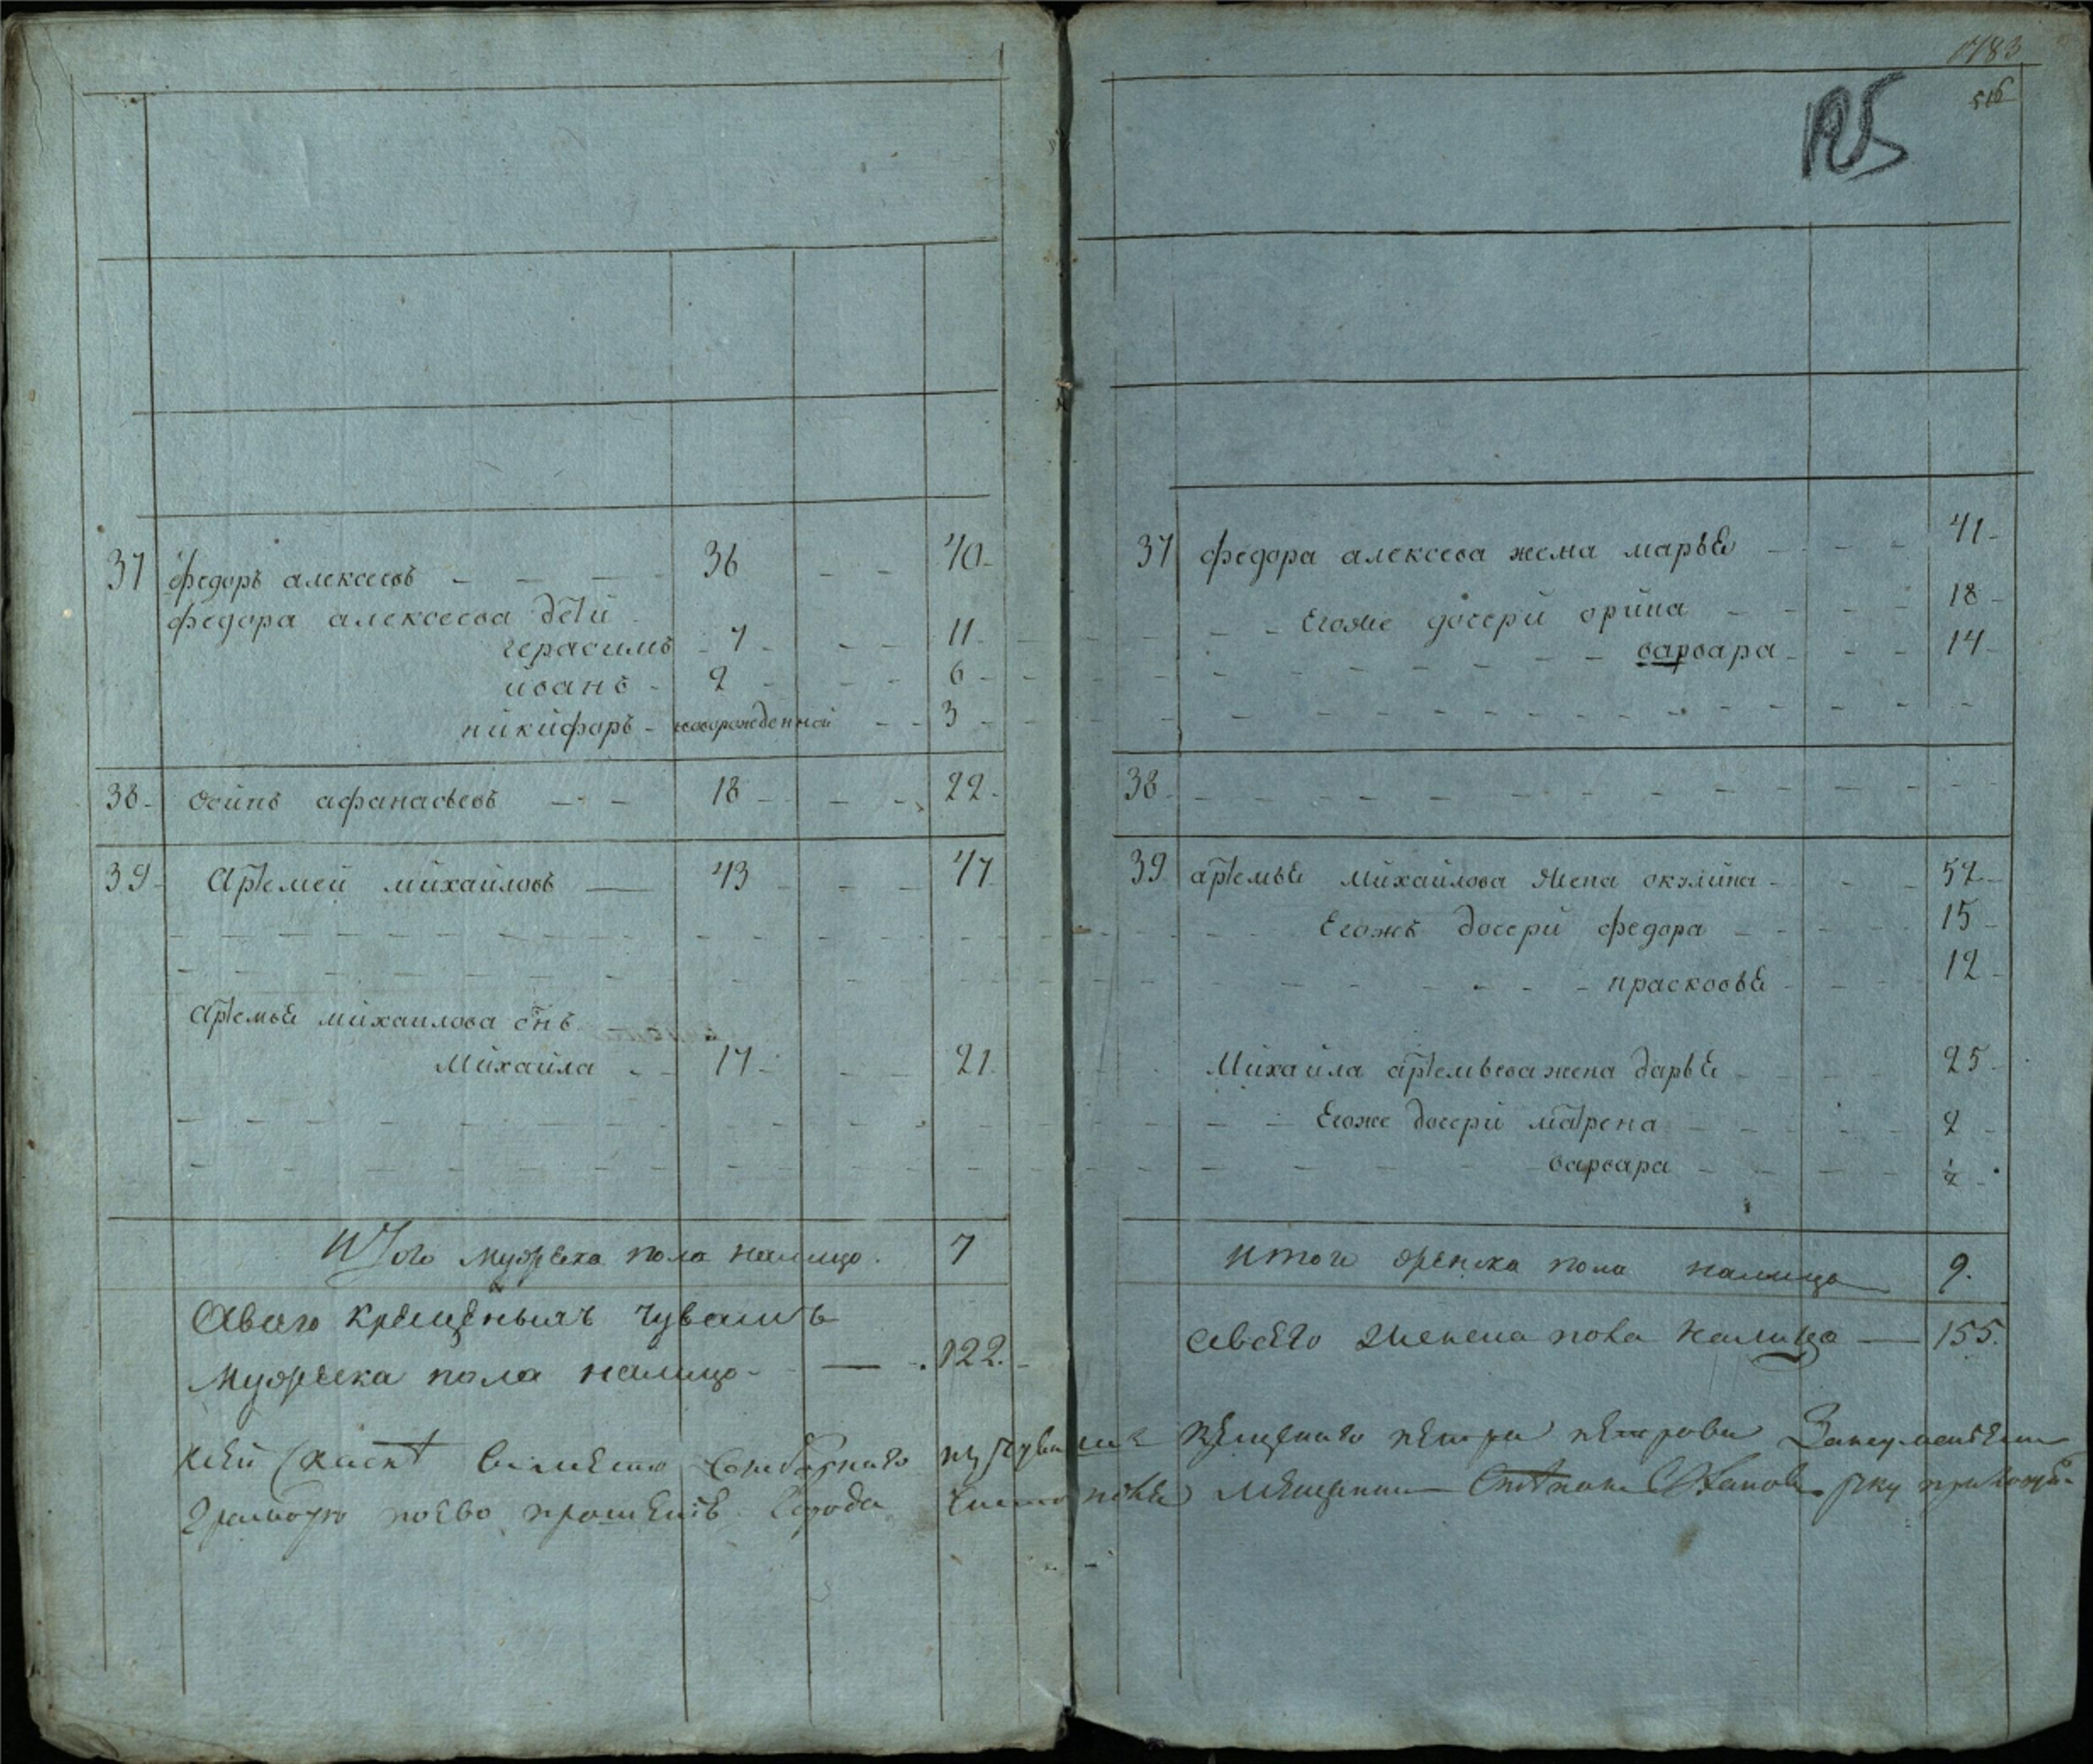 37 федоръ алексеевъ - - - 36 - - 40
федора алексеева дети
герасимъ - 7 - - - 11
иванъ - 2 - - - 6
никифоръ - новорожденной - - 3
38 осипъ афанасьевъ - - 18 - - - 22
39 Артемей михайловъ — 43 - - - 47
Артемья михаилова снъ
Михайла - - 17 - - - 21
Итого мужеска пола налицо. 7
А всего крещеныхъ чувашъ
мужеска пола налицо - — 122.
1183
516
125
37 федора алексеева жена марья - - - 41
Егоже дочери орина - - - - 18
варвара - - - 14
38
39 артемья михайлова жена окулина - - - 52
Егожъ дочери федора - - - - 15
прасковья - - - 12
Михайла артемьева жена дарья - - - 25
Егоже дочери матрена - - - - 2
варвара - - - - ½
итого женска пола налицо 9.
а всего женска пола налицо — 155.
крещенаго петра петрова
грамоту по ево прошению города мещанин Степан руку приложи